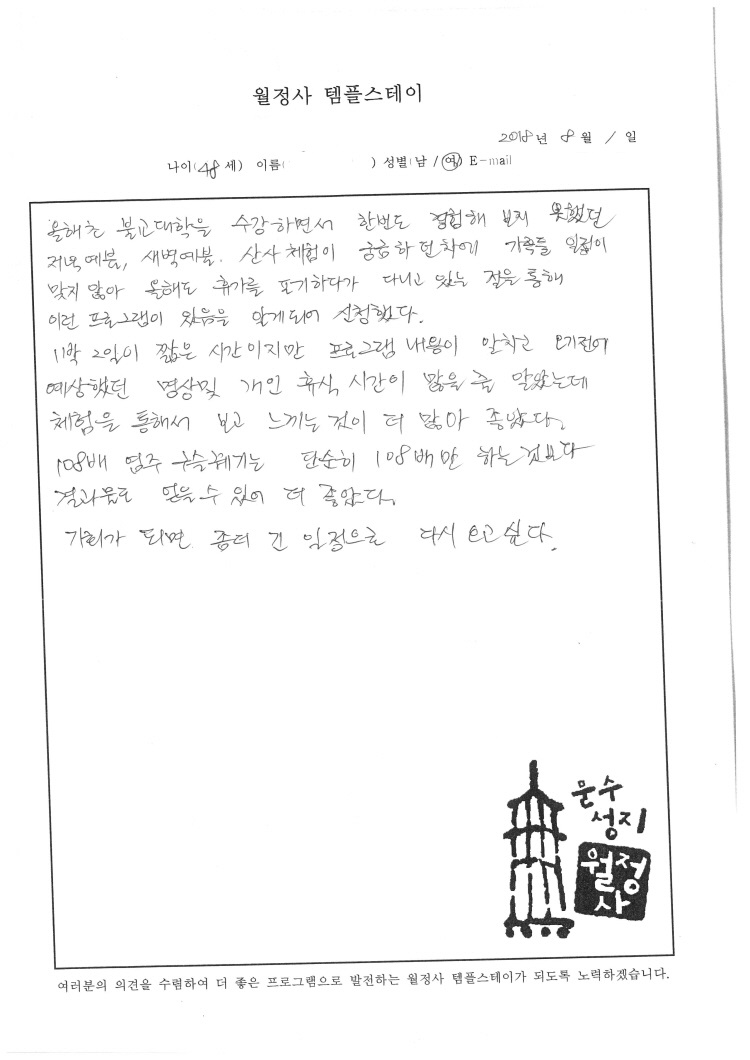 월정사 템플스테이
2018년 8월 1일
나이(48세) 이름( ) 성별(남/여) E-mail
올해초 불교대학을 수강하면서 한번도 경험해 보지 못했던
저녁예불, 새벽예불. 산사체험이 궁금하던차에 가족들 일정이
맞지 않아 올해도 휴가를 포기하다가 다니고 있는 절을 통해
이런 프로그램이 있음을 알게되어 신청했다.
1박 2일이 짧은 시간이지만 프로그램 내용이 알차고 오기전에
예상했던 명상및 개인 휴식 시간이 많을 줄 알았는데
체험을 통해서 보고 느끼는 것이 더 많아 좋았다.
108배 염주 구슬꿰기는 단순히 108배만 하는것보다
결과물도 얻을수 있어 더 좋았다.
기회가 되면 좀더 긴 일정으로 다시 오고싶다.
문수
성지
월정
사
여러분의 의견을 수렴하여 더 좋은 프로그램으로 발전하는 월정사 템플스테이가 되도록 노력하겠습니다.